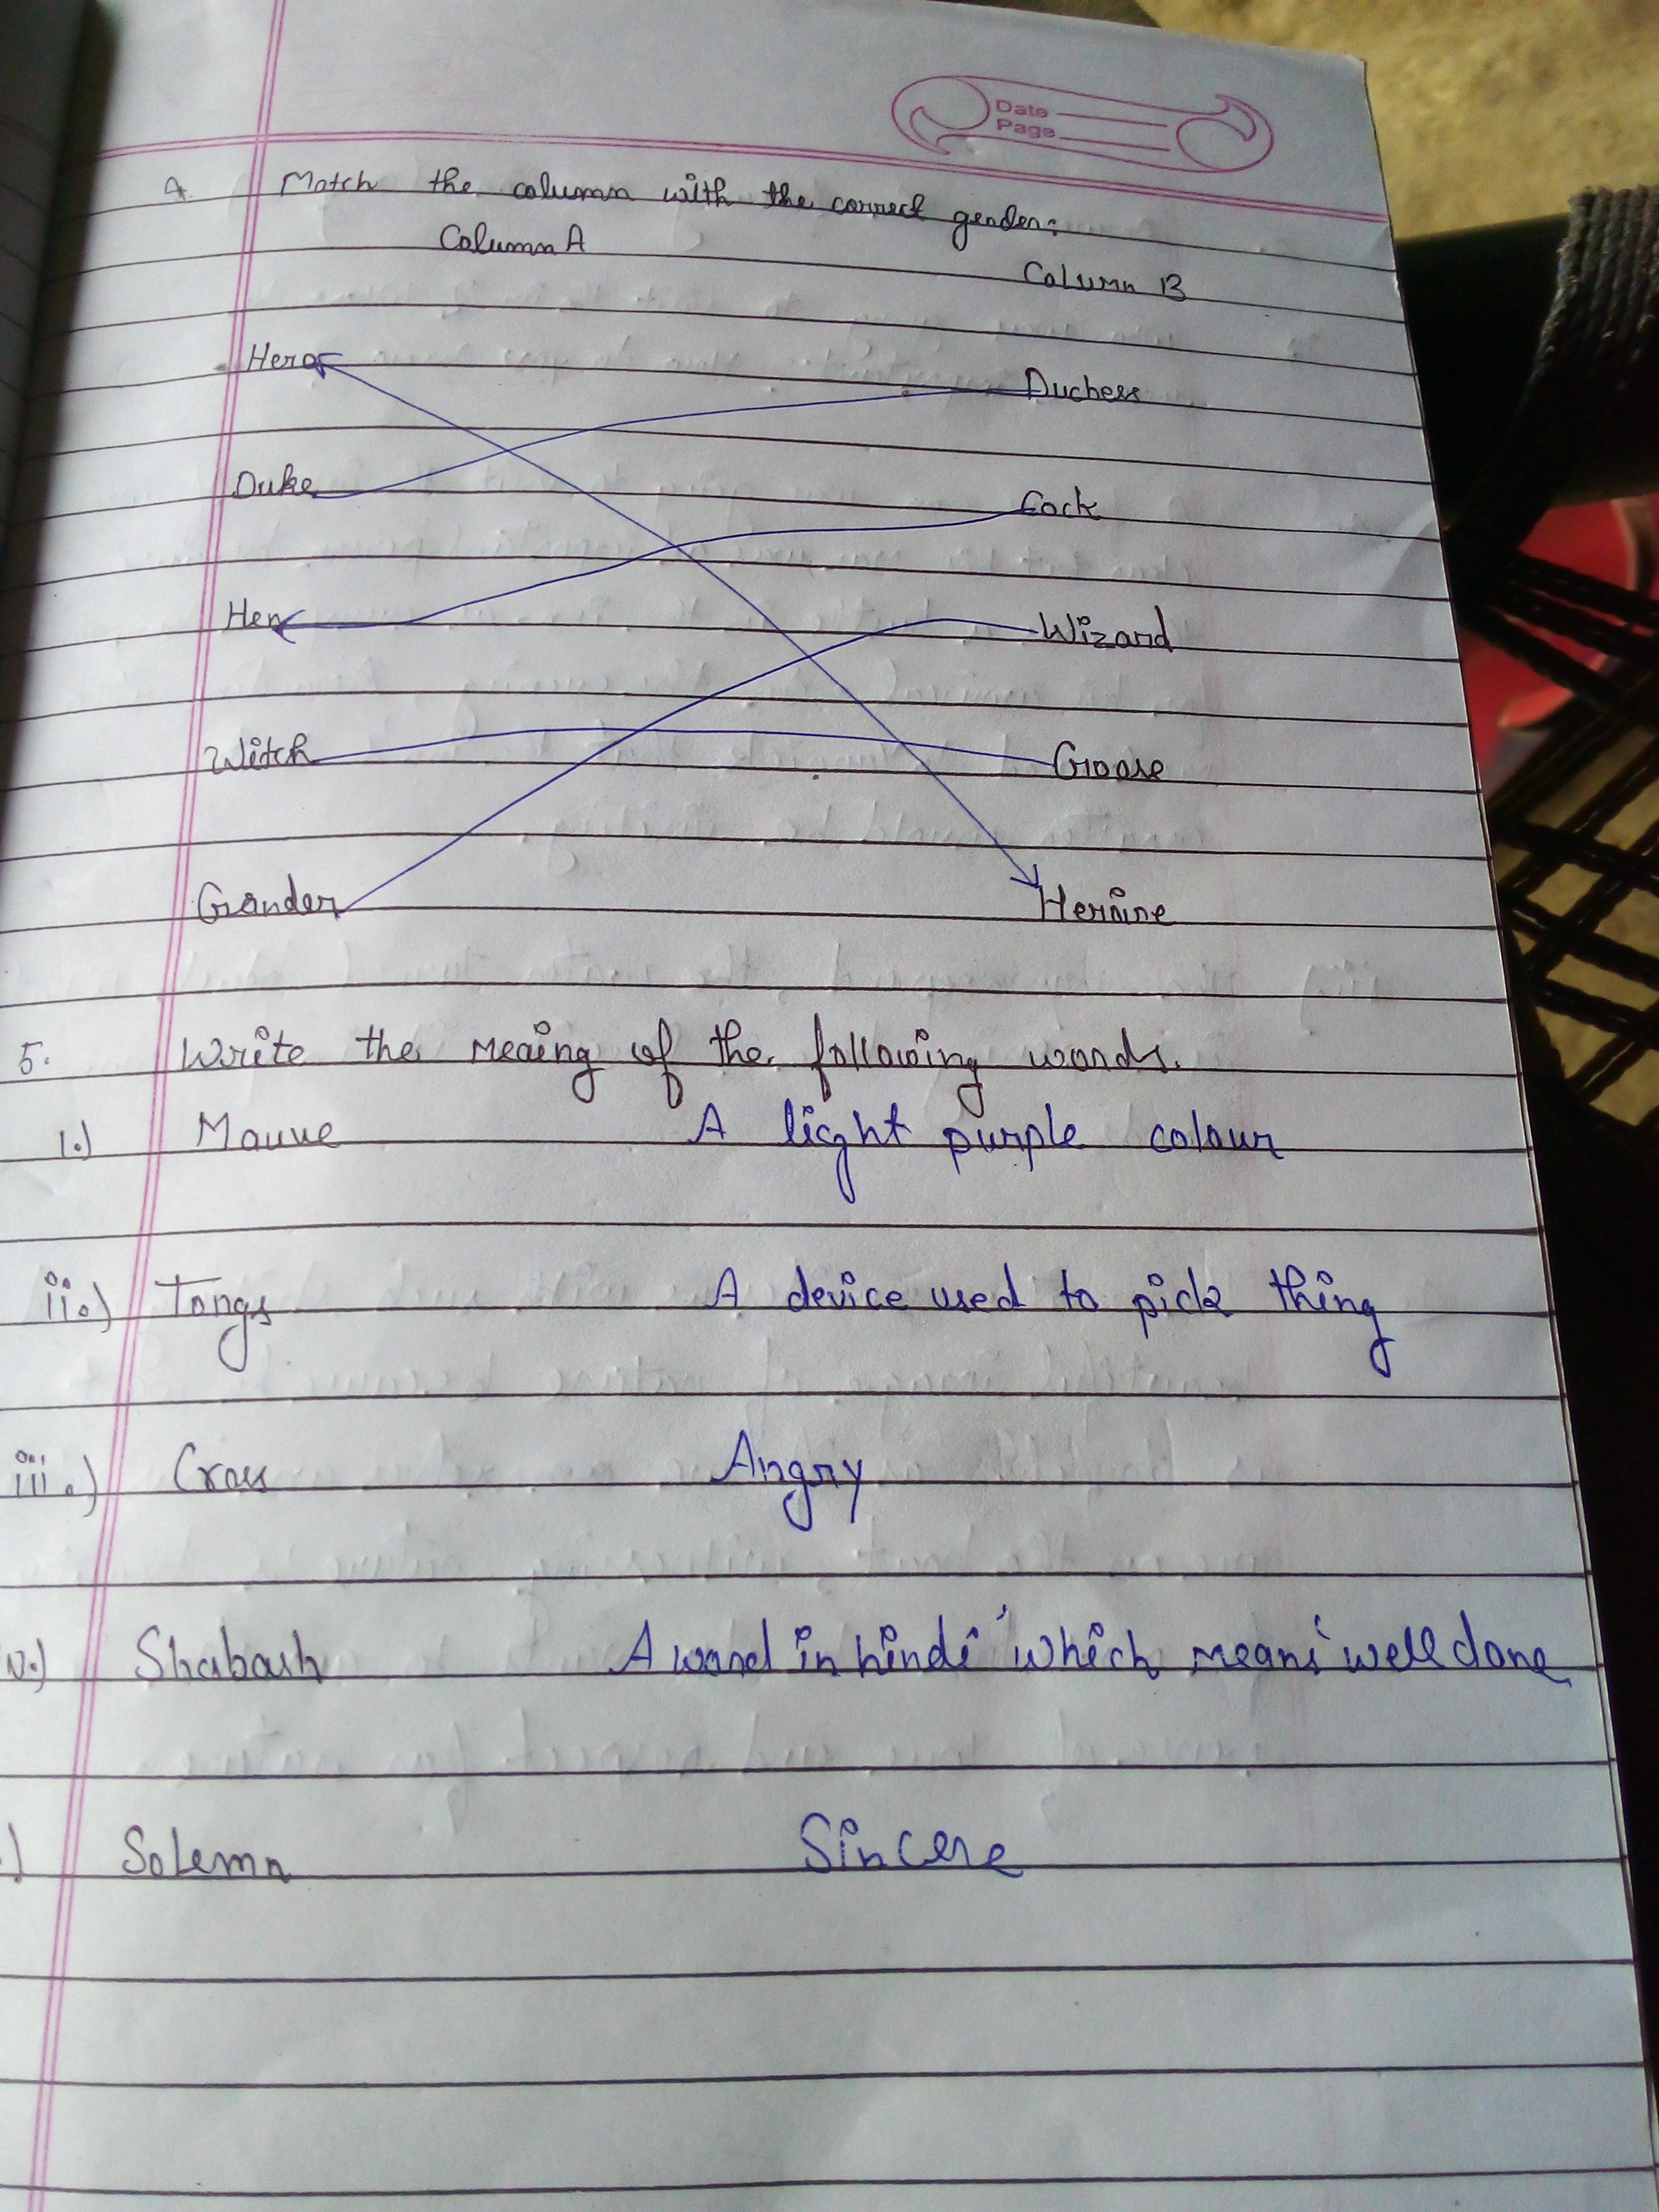 Date
Page
4. Match the column with the correct gender:
Column A
Column B
Hero
Duchess
Duke
Cock
Hen
Wizard
Witch
Goose
Gander
Heroine
5. Write the meaing of the following words.
i.) Mauve A light purple colour
ii.) Tongs A device used to pick thing
iii.) Cross Angry
iv.) Shabash A word in hindi 'which means' well done
.) Solemn Sincere